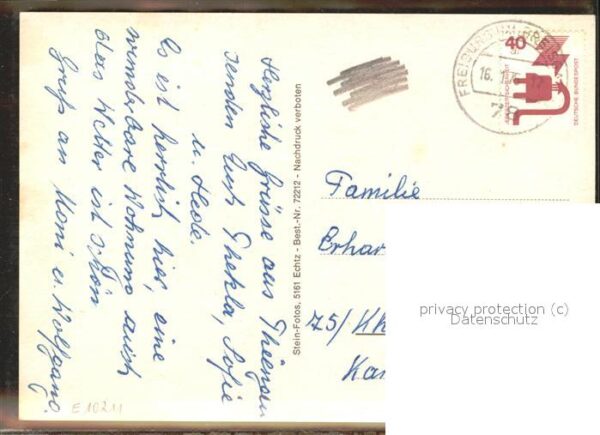 Herzliche Grüsse aus Thiengen
senden Euch Thekla, Sofie
u. Hede.
Es ist herrlich hier, eine
wunderbare Wohnung auch
das Wetter ist schön
Gruß an Moni u. Wolfgang.
E10211
Stein-Fotos, 5161 Echtz - Best.-Nr. 72212 - Nachdruck verboten
FREIBURG IM BREIS
16.1
40
DEUTSCHE BUNDESPOST
Familie
Erhar
75/ Kh
Kar
privacy protection (c)
Datenschutz